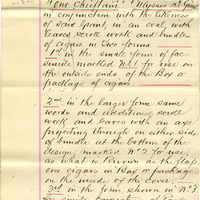 "Our Chieftain" "Ulysses S. Grant"
in conjunction with the likeness
of said Grant, in an oval, with
leaves scroll work and bundles
of cigars in two forms.
1st in the small form of fac
simile marked No 1 for use on
the outside ends of the Box or
package of cigars.
2nd in the larger form same
words and additional scroll
work and leaves with an axe
projecting through on either side
of bundle at the bottom of the
design, marked No 2, for use
as what is known as the flap
on cigars in Box or package
on the inside of the cover.
3rd in the form shown in No 3